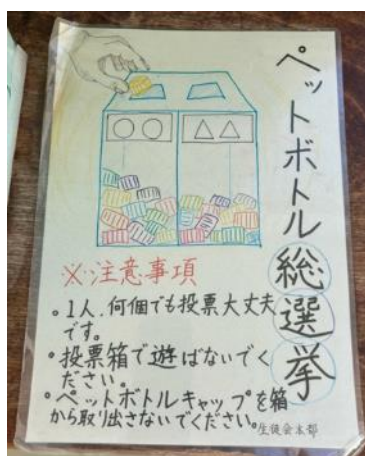 ペットボトル総選挙
○○
△△
※注意事項
。1人、何個でも投票大丈夫
です。
・投票箱で遊ばないでく
ださい。
・ペットボトルキャップを箱
から取り出さないでください。
生徒会本部